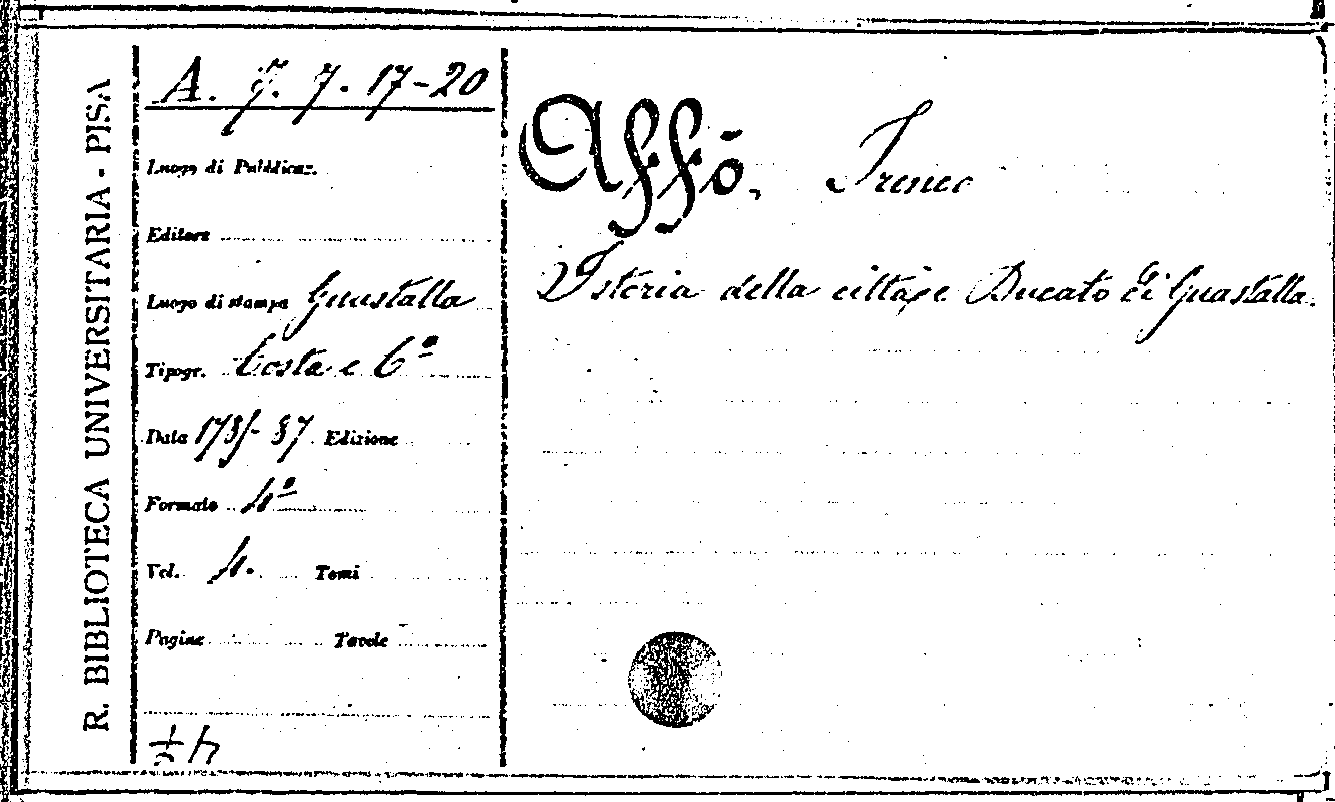 R. BIBLIOTECA UNIVERSITARIA - PISA
A. f. 7. 17-20
Luogo di Pubblicaz.
Editore
Luogo di stampa Guastalla
Tipogr. Costa e Cª
Data 1785-87 Edizione
Formato 4º
Vol. 4. Tomi
Pagine Tavole
Affò, Ireneo
Istoria della città, e Ducato di Guastalla.